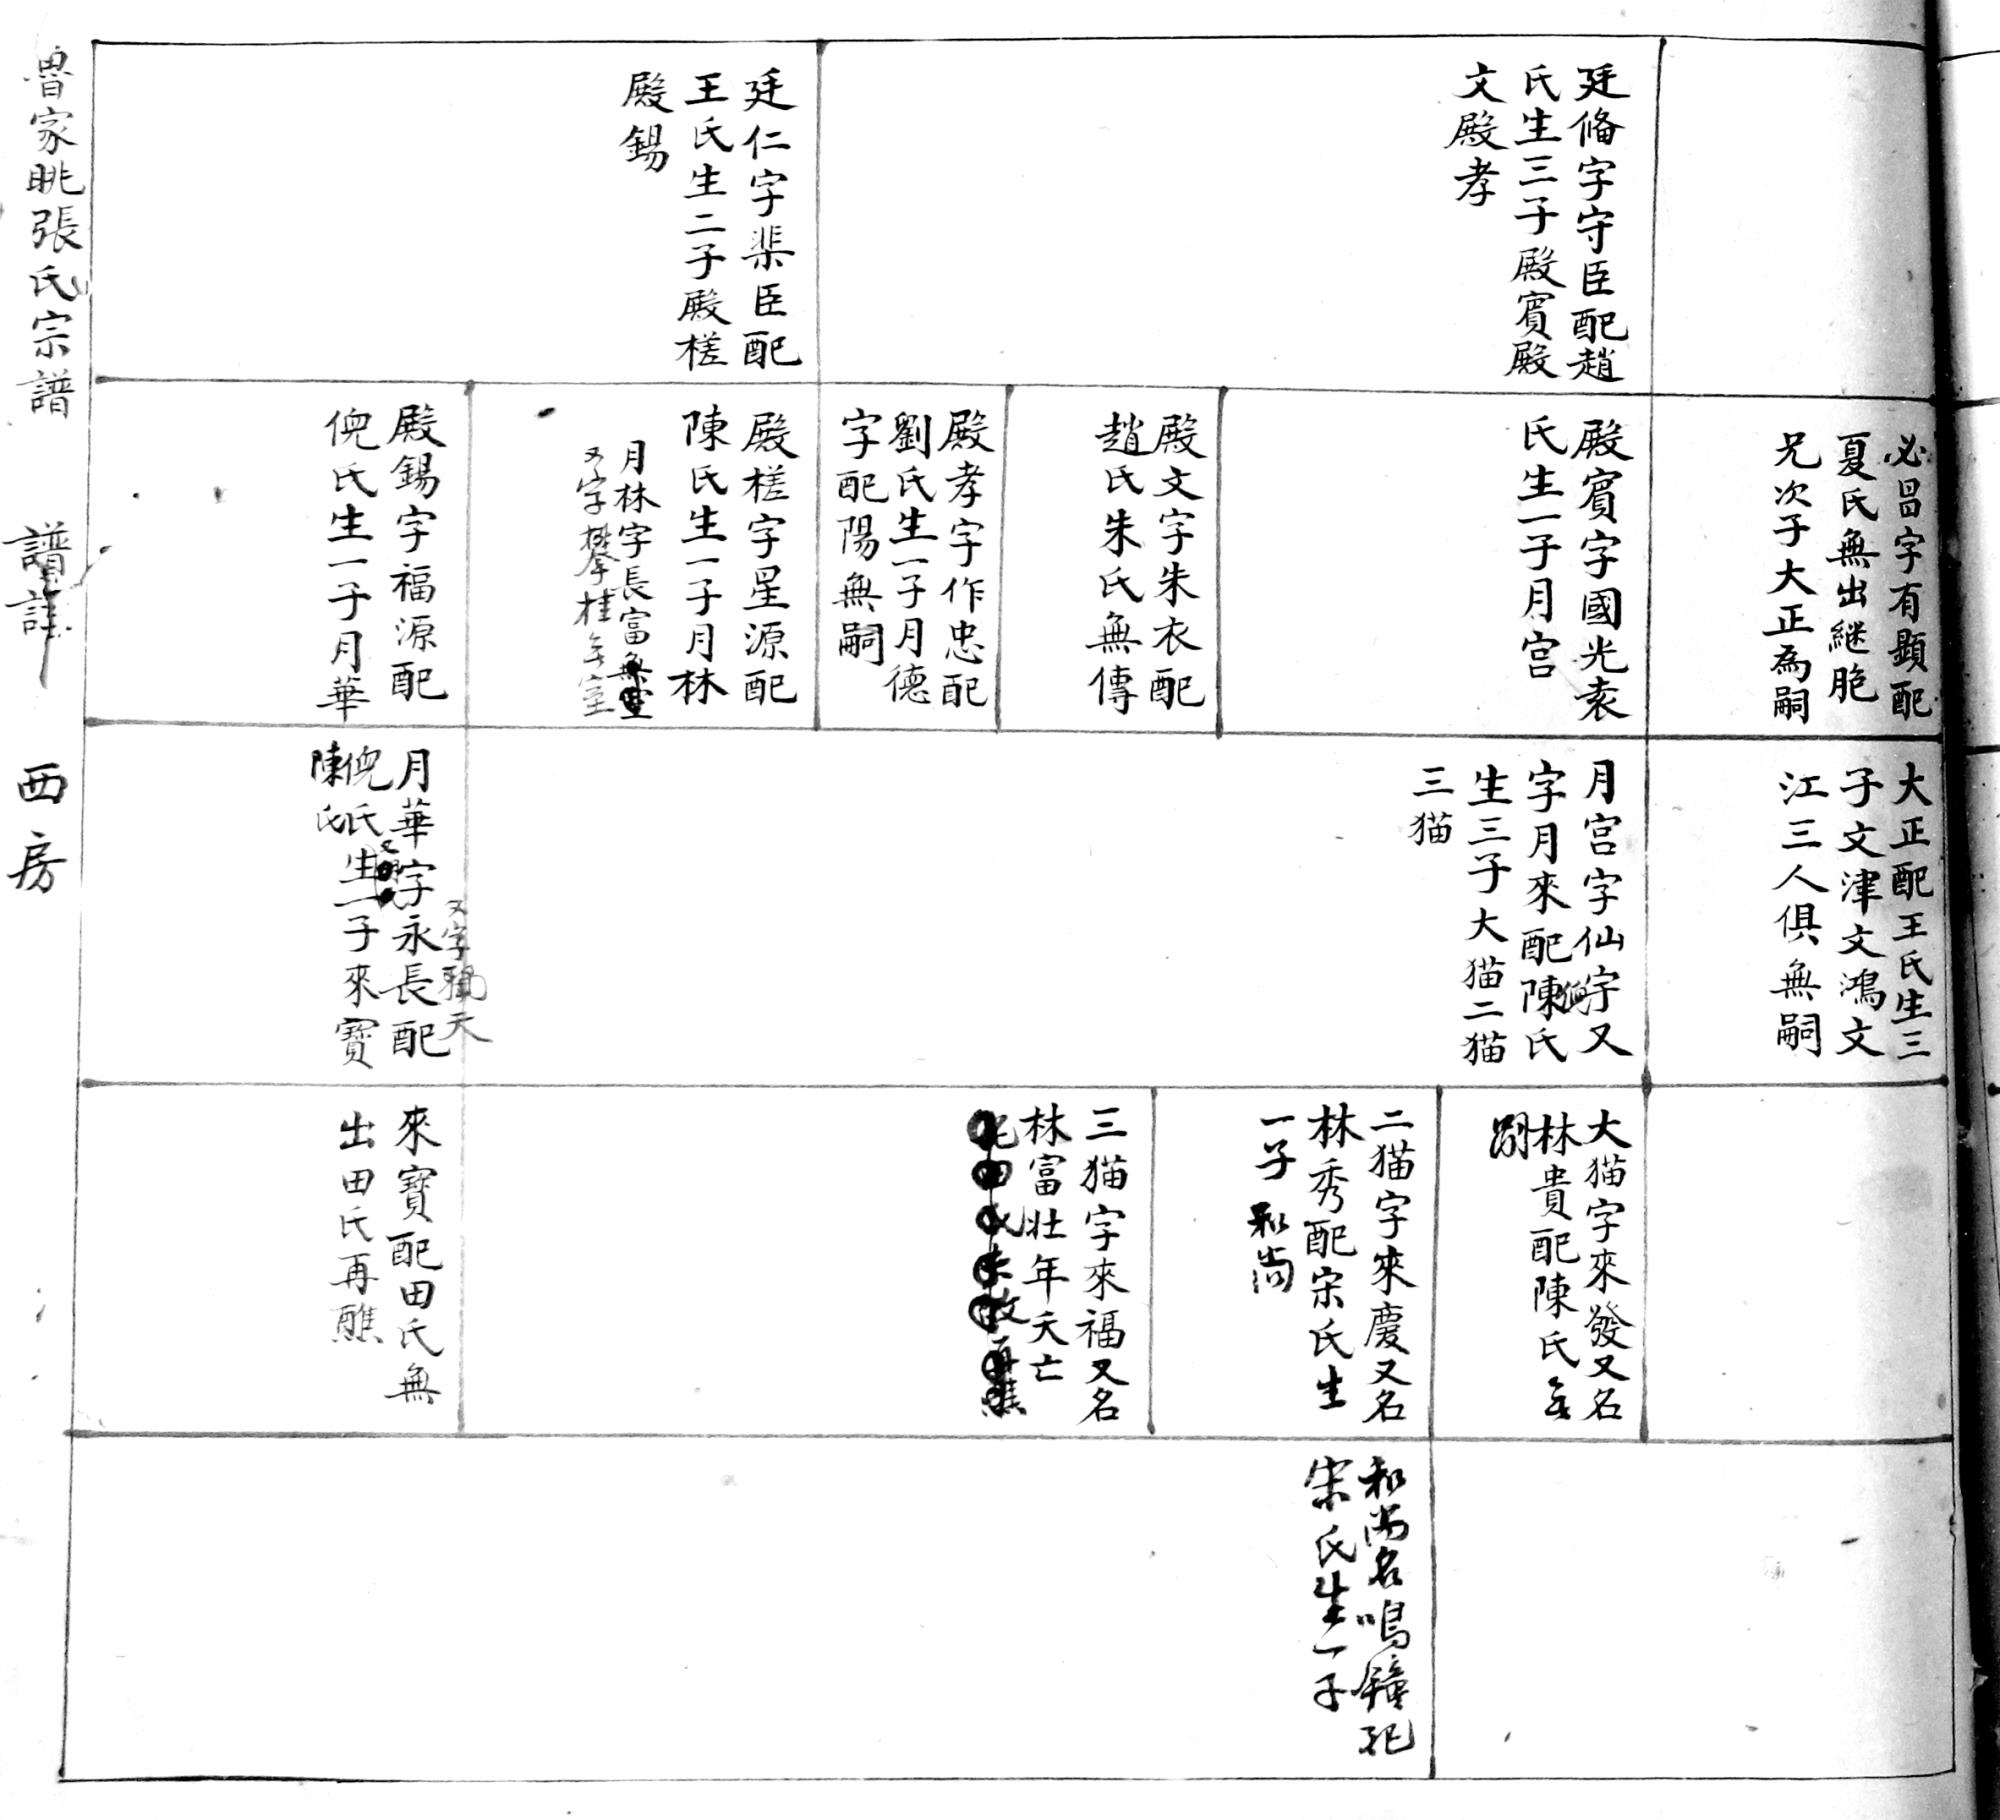 廷脩字守臣配趙
氏生三子殿賓殿
文殿孝
廷仁字渠臣配
王氏生二子殿槎
殿錫
必昌字有顯配
夏氏無出繼胞
兄次子大正為嗣
殿賓字國光袁
氏生一子月宫
殿文字朱衣配
趙氏朱氏無傳
殿孝字作忠配
劉氏生一子月德
字配陽無嗣
殿槎字星源配
陳氏生一子月林
月林字長富
又字攀桂無室
殿錫字福源配
倪氏生一子月華
大正配王氏生三
子文津文鴻文
江三人俱無嗣
月宫字仙宇又
字月來配陳氏
生三子大猫二猫
三猫
月華字永長配
倪氏生一子來寶
陳氏
大猫字來發又名
林貴配陳氏無
嗣
二猫字來慶又名
林秀配宋氏生
一子和尚
三猫字來福又名
林富壯年夭亡
來寶配田氏無
出田氏再醮
和尚名鳴鐘配
宋氏生一子
魯家眺張氏宗譜
譜註
西房